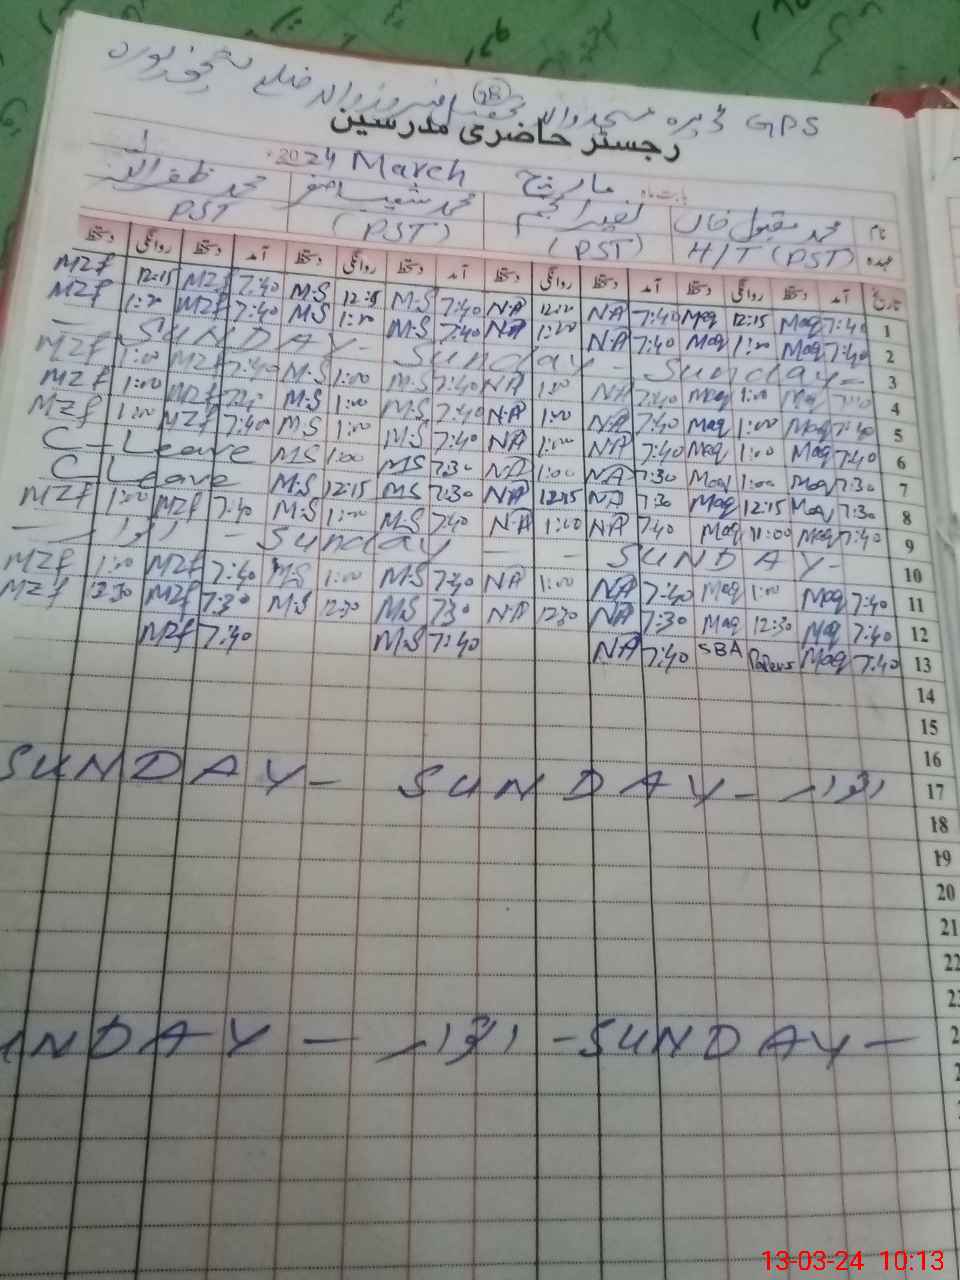 GPS ڈیرہ مسجد والہ تحصیل فیروزوالہ ضلع شیخوپورہ
رجسٹر حاضری مدرسین
بابت ماہ مارچ March 2024
نام محمد مقبول خان محمد ظفر اللہ
عہدہ H/T (PST) (PST) (PST) PST
تاریخ آمد دستخط روانگی دستخط آمد دستخط روانگی دستخط آمد دستخط روانگی دستخط آمد دستخط روانگی دستخط
1 7:40 Maq 12:15 Maq 7:40 NA N.A 7:40 M.S M.S 7:40 MZf 12:15 MZf
2 7:40 Maq 1:00 Maq 7:40 N.A 1:00 NA 7:40 M.S 1:00 M.S 7:40 MZf 1:00 MZf
3 Sunday - Sunday - SUNDAY -
4 Maq 1:00 Maq 7:40 NA NA 7:40 M.S 1:00 M.S 7:40 MZf 1:00 MZf
5 7:40 Maq 1:00 Maq 7:40 NA 1:00 N.A 7:40 M.S 1:00 M.S MZf 1:00 MZf
6 7:40 Maq 1:00 Maq 7:40 NA 1:00 NA 7:40 M.S 1:00 M.S 7:40 MZf 1:00 MZf
7 7:30 Maq 1:00 Maq 7:30 NA 1:00 NA 7:30 MS 1:00 MS C-Leave
8 7:30 Maq 12:15 Maq 7:30 NA 12:15 NA 7:30 MS 12:15 M.S C-Leave
9 7:40 Maq 11:00 Maq 7:40 NA 1:00 N.A 7:40 M.S 1:00 M.S 7:40 MZf 1:00 MZf
10 SUNDAY - - - Sunday - اتوار -
11 7:40 Maq 1:00 Maq 7:40 NA 1:00 NA 7:40 M.S 1:00 MS 7:40 MZf 1:00 MZf
12 7:40 Maq 12:30 Maq 7:30 NA 12:30 N.A 7:30 M.S 12:30 M.S 7:30 MZf 12:30 MZf
13 7:40 Maq Papers SBA 7:40 NA 7:40 M.S 7:40 MZf
14
15
16
17 SUNDAY - SUNDAY - اتوار
18
19
20
21
22
NDAY - اتوار - SUNDAY -
13-03-24 10:13